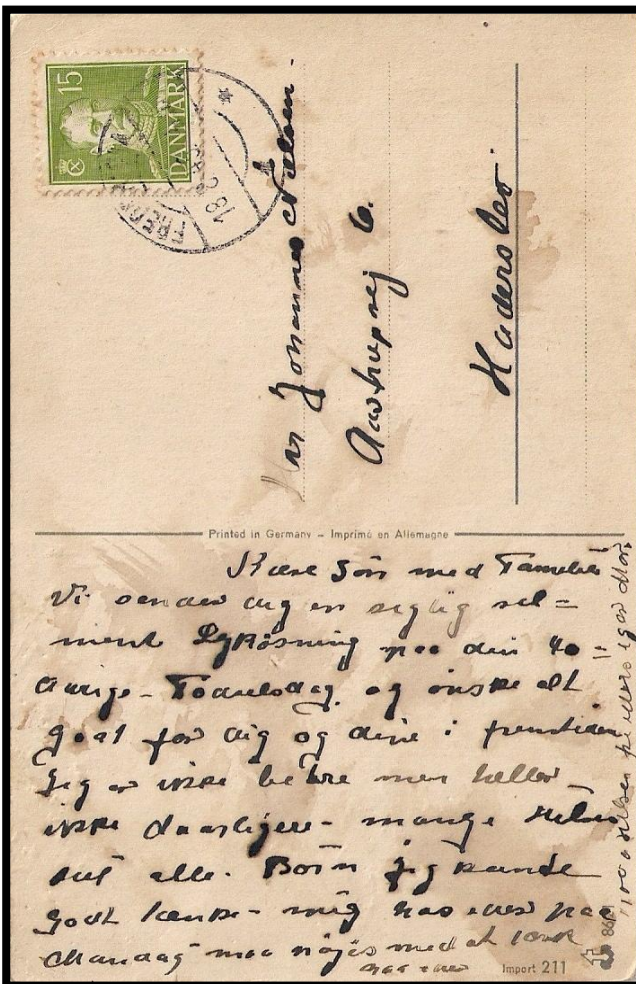 15
DANMARK
Johannes Nielsen.
Aastrupvej 6.
Haderslev
Printed in Germany – Imprimé en Allemagne
Kære Søn med Familie
Vi sender dig en rigtig
Lykøsning paa din 40
aarige - Födselsdag, og önske alt
godt for dig og dine i fremtiden
Jeg er ikke bedre men heller
ikke daarligere - mange
alle. Börn jeg kunde
godt tænke - mig hos eder paa
Mandag maa nøjes med at tænk
Import 211